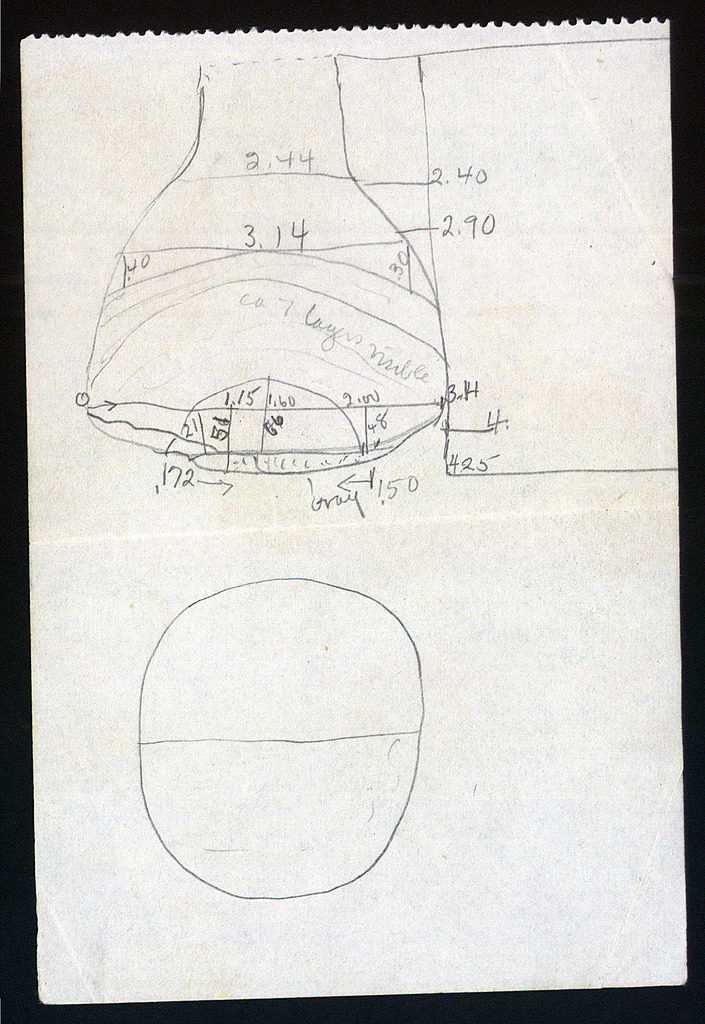 2.44
2.40
2.90
3.14
.40
.30
ca 7 layers visible
1.15 1.60 2.00 3.14
21 51 66 48 4.
.172 → Gray ← 1.50 425